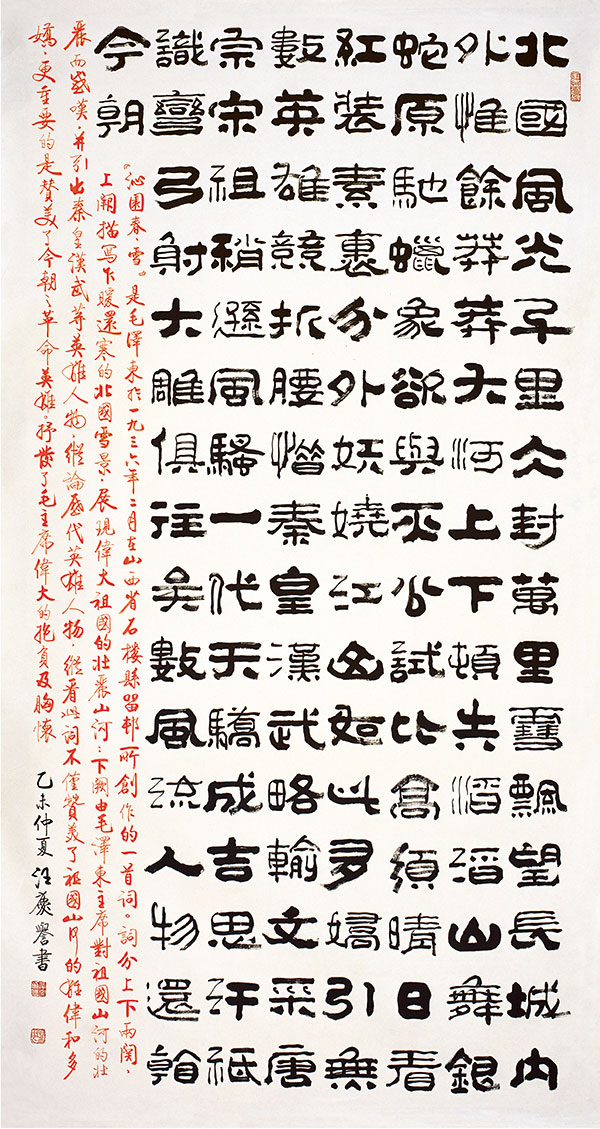 北國風光千里仌封萬里雪飄望長城內
外惟餘莽莽大河上下頓失滔滔山舞銀
蛇原馳蠟象欲與天公試比高須晴日看
紅裝素裹分外妖嬈江山如此多嬌引無
數英雄競折腰惜秦皇漢武略輸文采唐
宗宋祖稍遜風騷一代天驕成吉思汗祗
識彎弓射大雕俱往矣數風流人物還看
今朝
《沁園春·雪》是毛澤東於一九三六年二月在山西省石樓縣留邨所創作的一首词。詞分上下兩闋，
上闋描写乍暖還寒的北國雪景，展現偉大祖國的壯麗山河；下闋由毛澤東主席對祖國山河的壯
麗而感嘆，并引出秦皇漢武等英雄人物，縱論歷代英雄人物，縱看此詞不僅贊美了祖國山河的雄偉和多
嬌，更重要的是贊美了今朝之革命英雄，抒發了毛主席偉大的抱負及胸懷
乙未仲夏 汪廣譽書